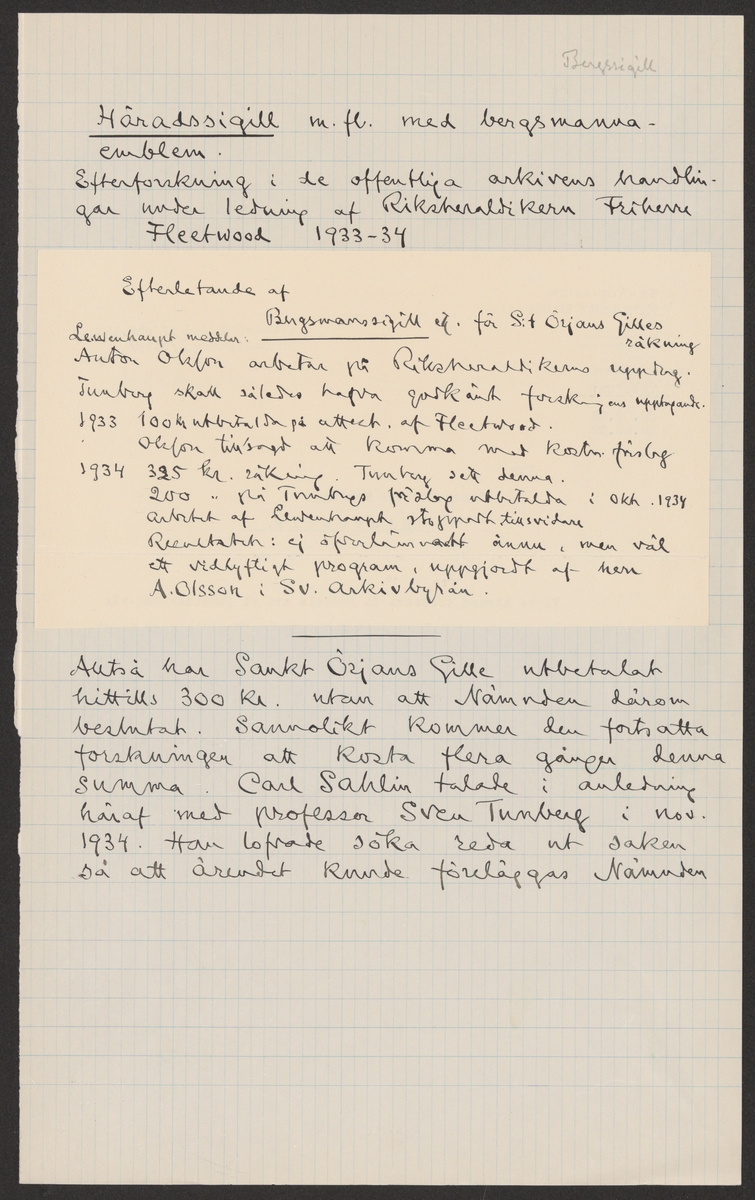 Bergssigill
Häradssigill m. fl. med bergsmanna-
emblem.
Efterforskning i de offentliga arkivens handlin-
gar under ledning af Riksheraldikern Friherre
Fleetwood 1933-34
Efterletande af
Bergsmanssigill för S:t Örjans Gilles
räkning
Lewenhaupt meddelar:
Anton Olsson arbetar på Riksheraldikerns uppdrag.
Tunberg skall således hafva godkänt forskningens upptagande.
1933 100 kr utbetalda på attest. af Fleetwood.
Olsson tillsagd att komma med kostn. förslag
1934 325 kr. räkning. Tunberg sett denna.
200 " på Tunbergs förslag utbetalda i Okt. 1934
Arbetet af Lewenhaupt stoppadt tillsvidare
Resultatet: ej öfverlämnadt ännu, men väl
ett vidlyftigt program, uppgjordt af herr
A. Olsson i Sv. Arkivbyrån.
Alltså har Sankt Örjans Gille utbetalat
hittills 300 kr. utan att Nämnden därom
beslutat. Sannolikt kommer den fortsatta
forskningen att kosta flera gånger denna
summa. Carl Sahlin talade i anledning
häraf med professor Sven Tunberg i nov.
1934. Han lofvade söka reda ut saken
så att ärendet kunde föreläggas Nämnden